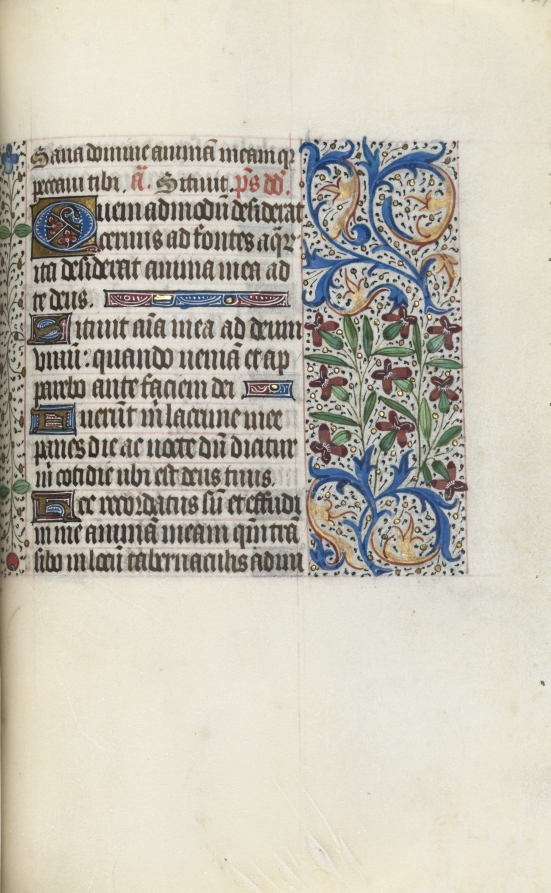 Sana domine animā meam qꝛ
peccaui tibi. a͞. Sitiuit. p͞s dd̄.
Quemadmodū desiderat
ceruus ad fontes aq̄ꝝ
ita desiderat anima mea ad
te deus.
Sitiuit aīa mea ad deum
viuū: quando ueniā et ap
parebo ante faciem dei
Fuerūt m̄ lacrime mee
panes die ac nocte dū dicitur
m̄ cotidie ubi est deus tuus.
Hec recordatus sū et effudi
in me animā meam qm̄ trā
sibo in locū tabernaculi adm